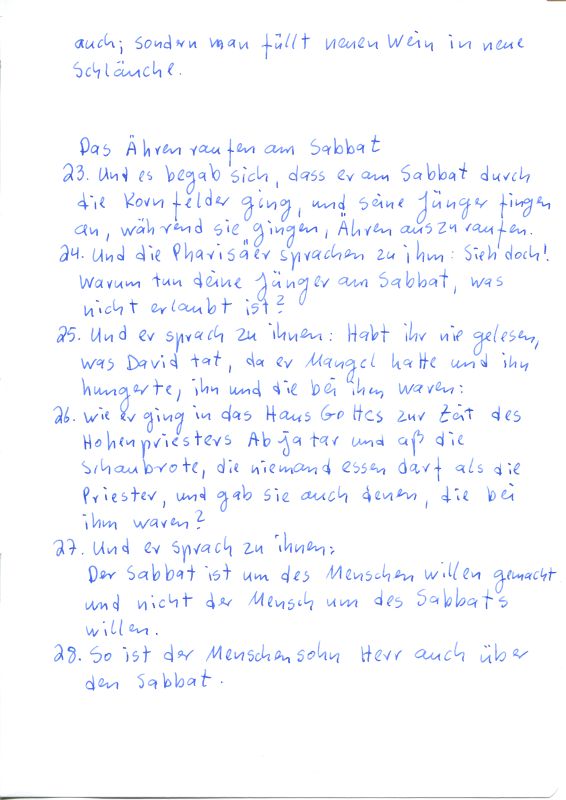 auch; sondern man füllt neuen Wein in neue
Schläuche.
Das Ährenraufen am Sabbat
23. Und es begab sich, dass er am Sabbat durch
die Kornfelder ging, und seine Jünger fingen
an, während sie gingen, Ähren auszuraufen.
24. Und die Pharisäer sprachen zu ihm: Sieh doch!
Warum tun deine Jünger am Sabbat, was
nicht erlaubt ist?
25. Und er sprach zu ihnen: Habt ihr nie gelesen,
was David tat, da er Mangel hatte und ihn
hungerte, ihn und die bei ihm waren:
26. wie er ging in das Haus Gottes zur Zeit des
Hohenpriesters Abjatar und aß die
Schaubrote, die niemand essen darf als die
Priester, und gab sie auch denen, die bei
ihm waren?
27. Und er sprach zu ihnen:
Der Sabbat ist um des Menschen willen gemacht
und nicht der Mensch um des Sabbats
willen.
28. So ist der Menschensohn Herr auch über
den Sabbat.